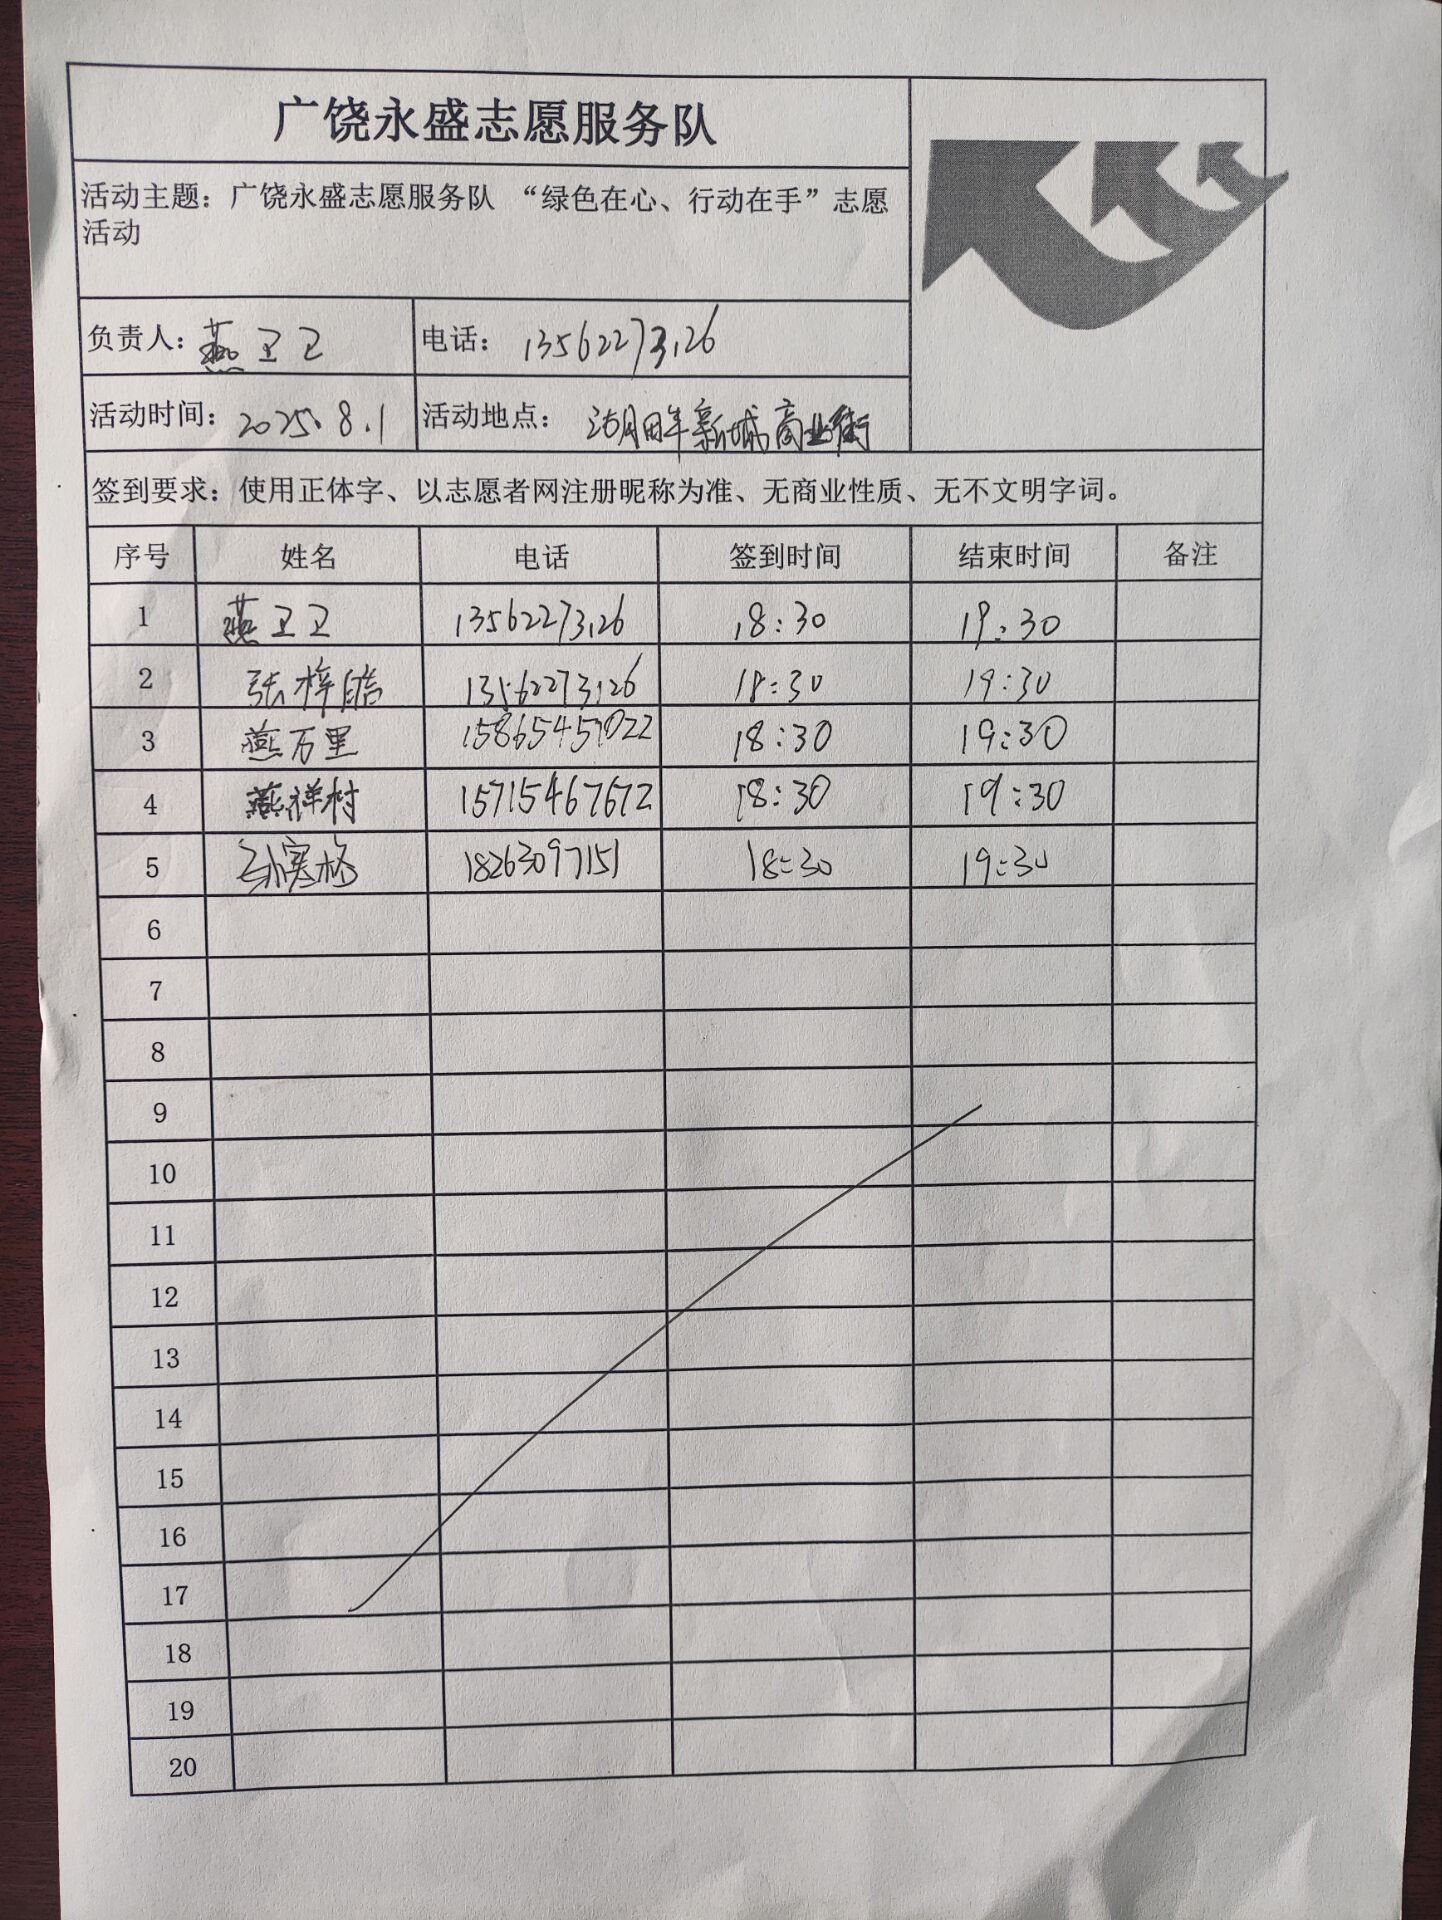 广饶永盛志愿服务队
活动主题：广饶永盛志愿服务队 “绿色在心、行动在手”志愿
活动
负责人：燕卫卫 电话：13562273126
活动时间：2025.8.1 活动地点：湖畔新城商业街
签到要求：使用正体字、以志愿者网注册昵称为准、无商业性质、无不文明字词。
序号 姓名 电话 签到时间 结束时间 备注
1 燕卫卫 13562273126 18:30 19:30
2 张梓皓 13562273126 18:30 19:30
3 燕万里 15865457022 18:30 19:30
4 燕祥村 15715467672 18:30 19:30
5 孙寒格 18263097151 18:30 19:30
6
7
8
9
10
11
12
13
14
15
16
17
18
19
20